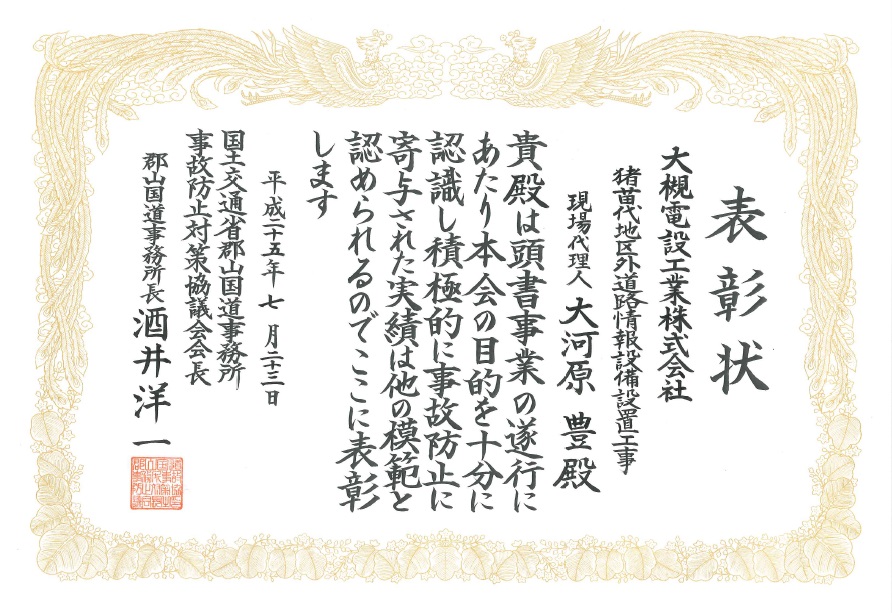 表彰状
大槻電設工業株式会社
猪苗代地区外道路情報設備設置工事
現場代理人 大河原 豊 殿
貴殿は頭書事業の遂行に
あたり本会の目的を十分に
認識し積極的に事故防止に
寄与された実績は他の模範と
認められるのでここに表彰
します
平成二十五年 七月二十三日
国土交通省郡山国道事務所
事故防止対策協議会会長
郡山国道事務所長 酒井洋一